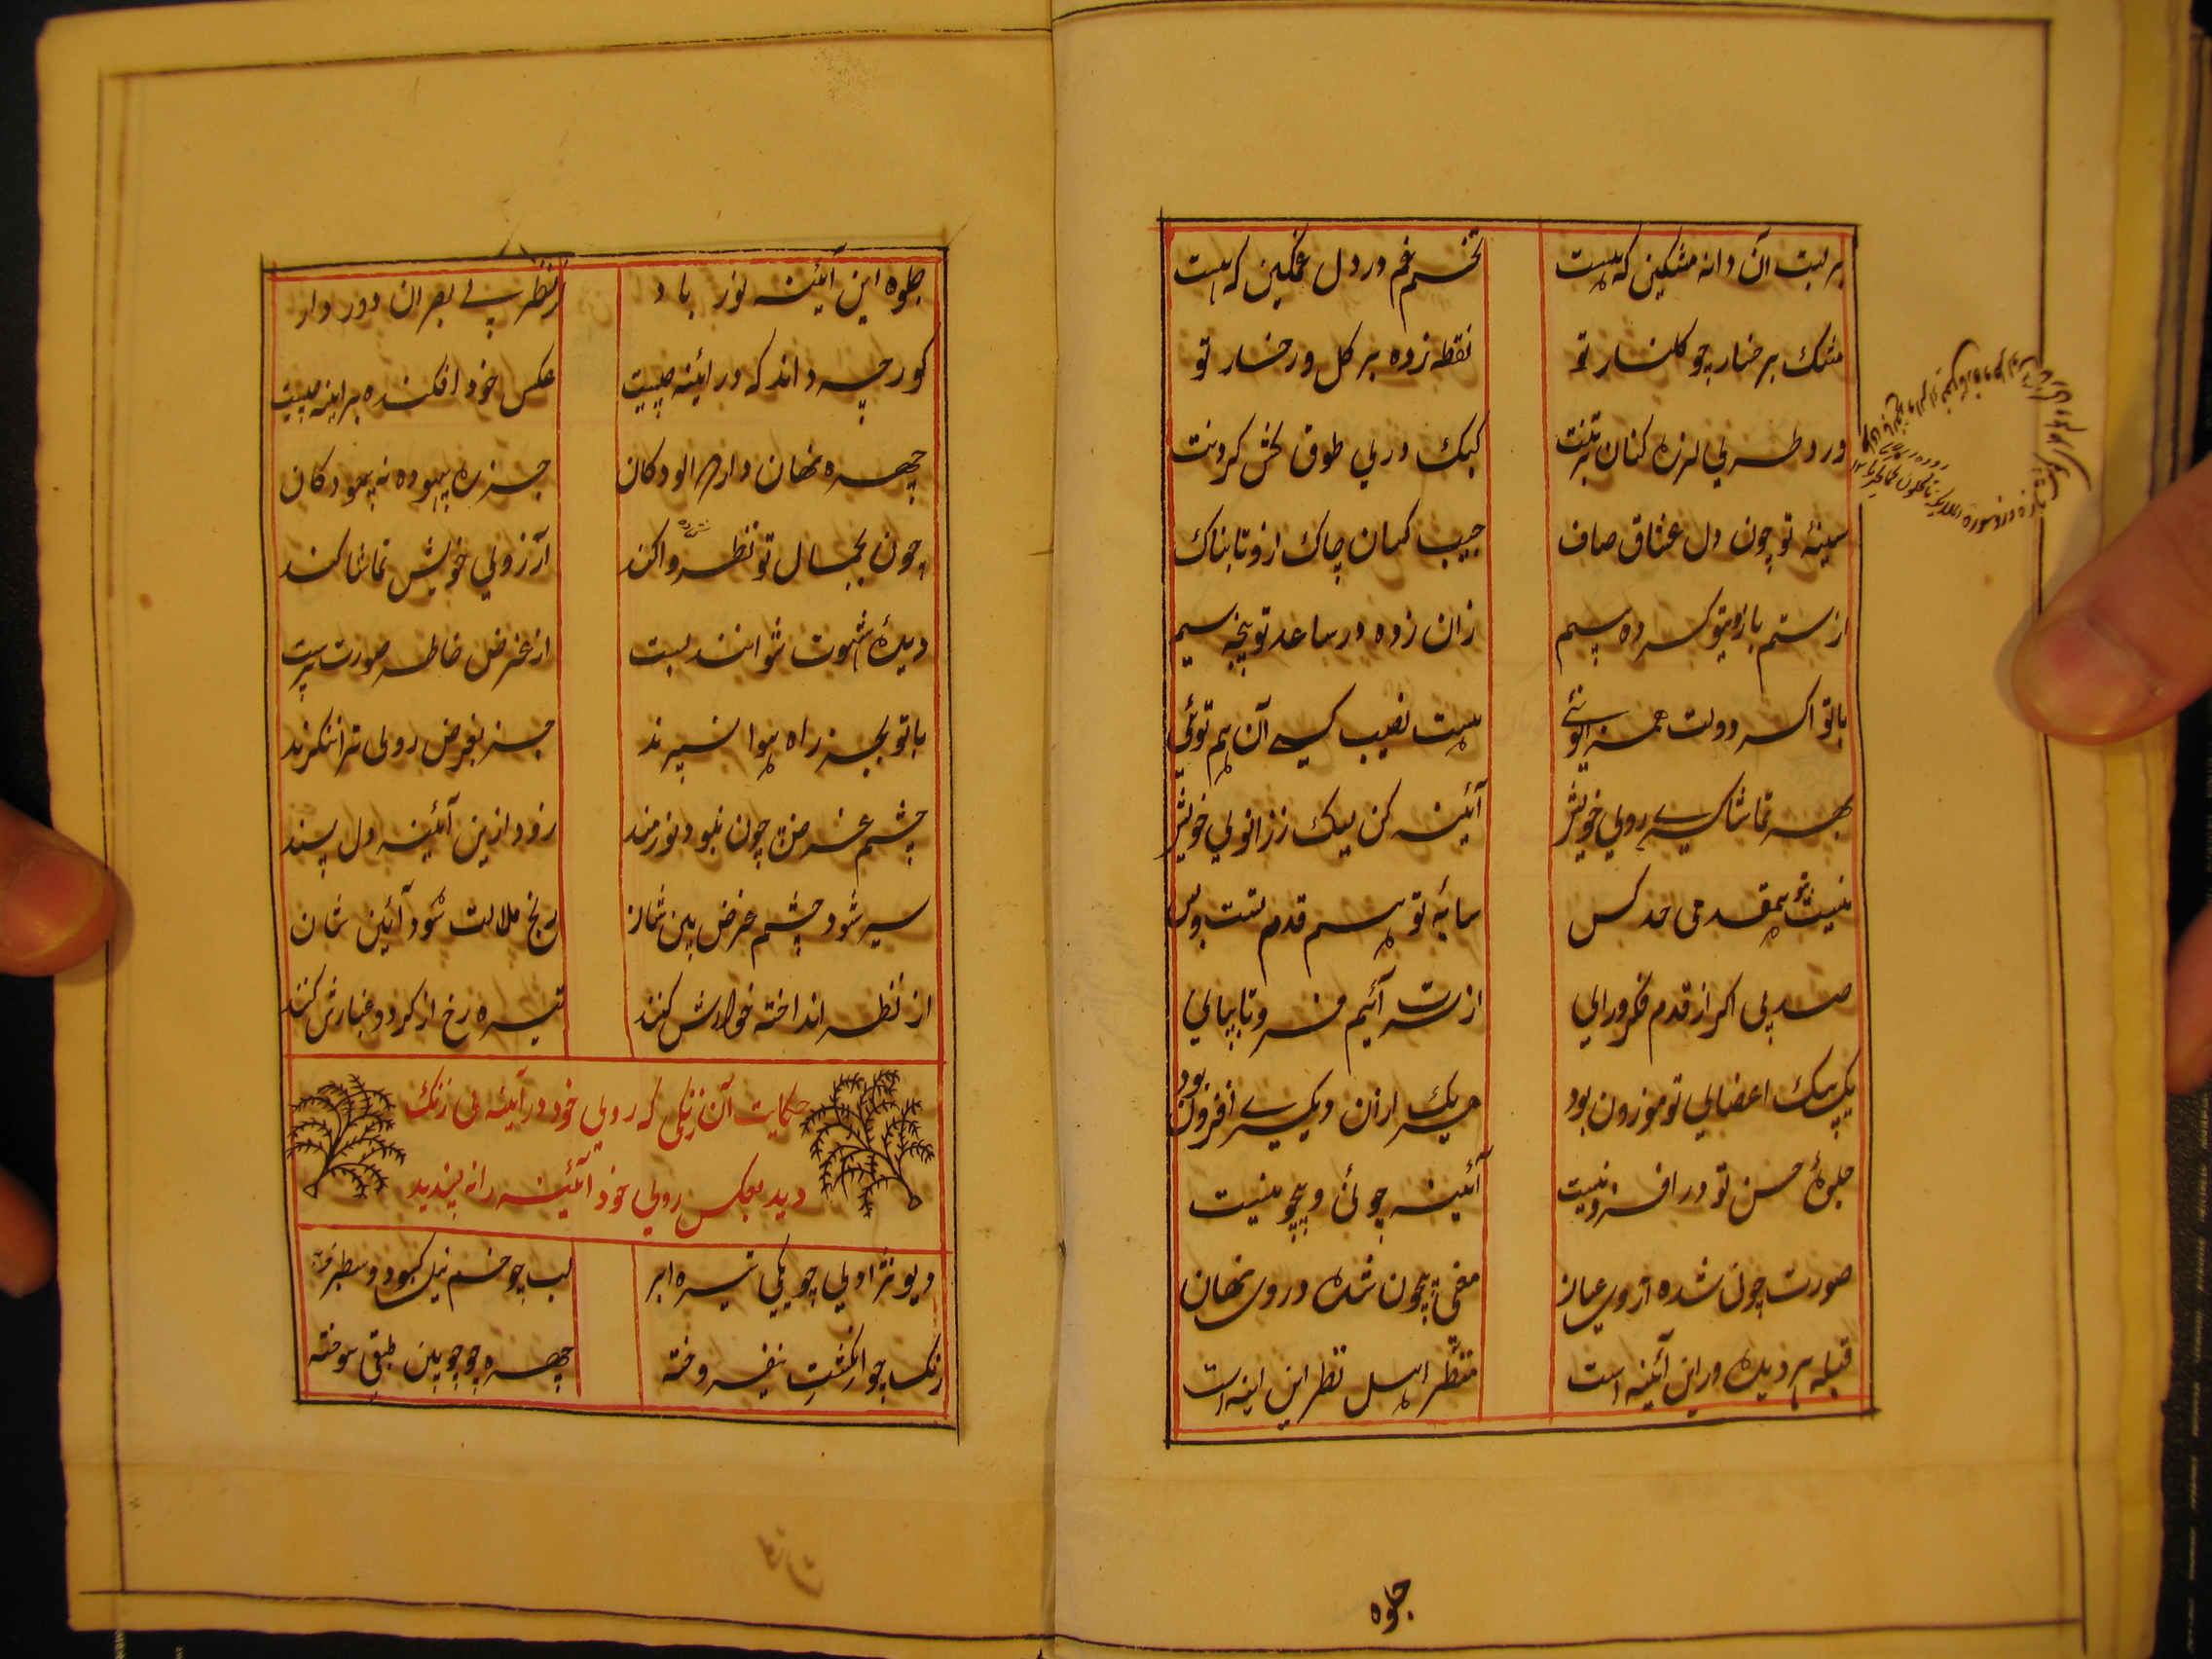 بر لبت آن دانه مشکین که هست
تخم غم در دل غمگین که هست
مشک بر خسار چو کلنار تو
نقطه زده بر کل رخسار تو
کبک دری طوق کش کردنت
سینهٔ تو چون دل عشاق صاف
جیب کمان چاک از و تا بناف
از ستم بازوی تو کرده بیم
زان زده در ساعد تو پنجه سیم
با تو اکر دولت همزانوئی
هست نصیب کسی آن هم توئی
بهر تماشاکری روی خویش
آئینه کن لیک ز زانوی خویش
نیست بتو همقدمی حد کس
سایهٔ تو هم قدم تست و بس
صد پی اکر از قدم فکر و رای
از سرت آئیم فرو تا بپای
یک بیک اعضای تو موزون بود
هر یک از ان دیکری افزون بود
جلوهٔ حسن تو در افزونیست
آئینه چونی و بیچونیست
صورت چون شده از وی عیان
معنی بیچون شده در وی نهان
قبله هر دیده ور این آئینه است
منظر اهل نظر این اینه است
جلوه
جلوه این آئینه نور باد
از نظر بی بصران دور دار
کور چه داند که در ائینه چیست
عکس خود افکنده بر اینه چیست
چهره نهان دار ز الودکان
جز ره بیهوده نه پیمودکان
چون بجمال تو نظر وا کنند
آرزوی خویش تماشا کنند
دیدهٔ شهوت نتوانند بست
از غرض خاطر صورت پرست
با تو بجز راه هوا نسپرند
جز بغرض روی ترا ننکرند
چشم غرض چون نبود نورمند
زود ازین آئینه دل پسند
سیر شود چشم غرض بین شان
رنج ملالت شود آئین شان
از نظر انداخته خوارش کنند
تیره رخ از کرد و غبارش کنند
حکایت آن زنکی که روی خود در آینه بی زنک
دید بعکس روی خود آئینه را نه پسندید
دیو نژادی چو یکی تیره ابر
رنک چو انکشت نیفروخته
چهره چو چوبین طبقی سوخته